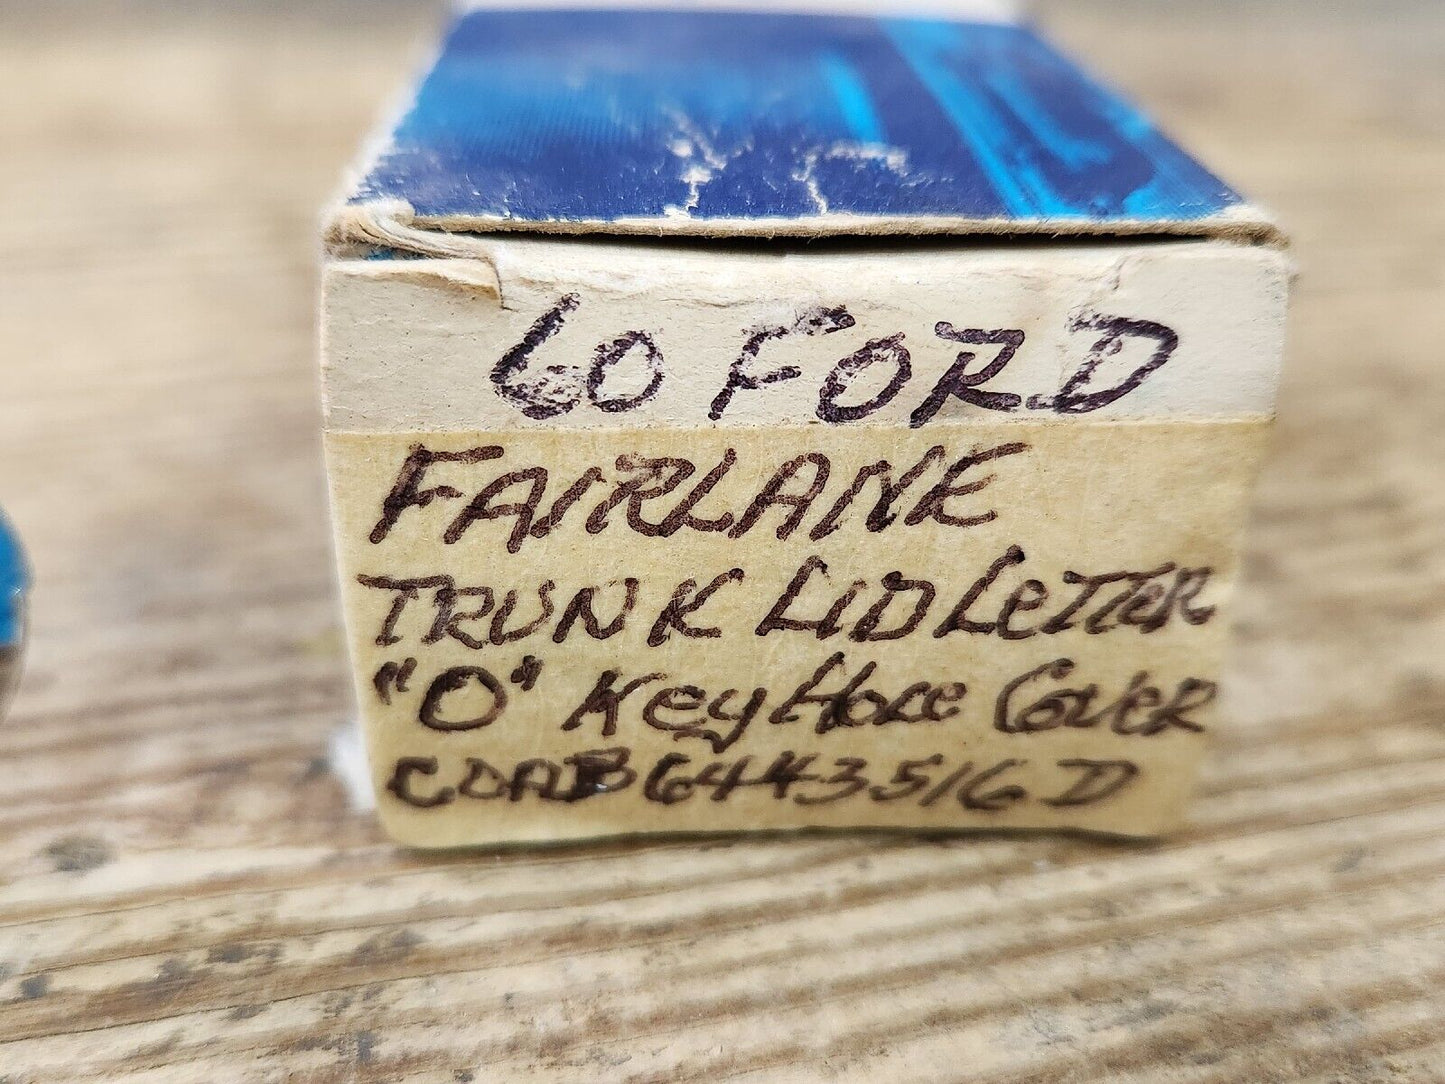 60 FORD
FAIRLANE
TRUNK LID LeTTeR
"O" Key Hole Cover
CDAB6443516D